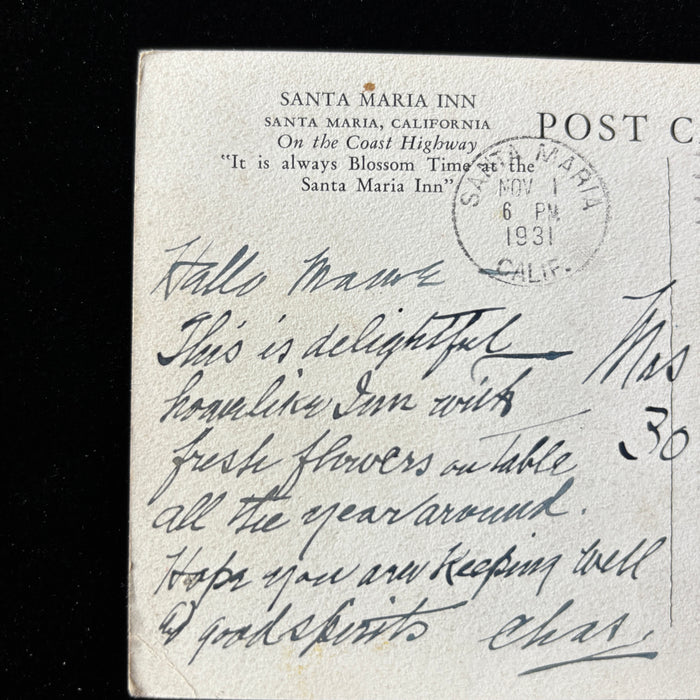 SANTA MARIA INN
SANTA MARIA, CALIFORNIA
On the Coast Highway
"It is always Blossom Time at the
Santa Maria Inn"
POST C
SANTA MARIA
NOV 1
6 PM
1931
CALIF.
Hallo
This is delightful
homelike Inn with
fresh flowers on table
all the year around.
Hope you are keeping well
good spirits Chas.
30